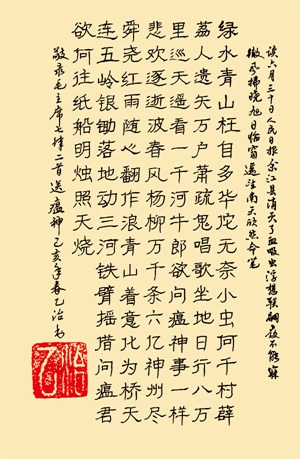 读六月三十日人民日报余江县消灭了血吸虫浮想联翩夜不能寐
微风拂晓旭日临窗遥望南天欣然命笔
绿水青山枉自多华佗无奈小虫何千村薜
荔人遗矢万户萧疏鬼唱歌坐地日行八万
里巡天遥看一千河牛郎欲问瘟神事一样
悲欢逐逝波春风杨柳万千条六亿神州尽
舜尧红雨随心翻作浪青山着意化为桥天
连五岭银锄落地动三河铁臂摇借问瘟君
欲何往纸船明烛照天烧
敬录毛主席七律二首送瘟神己亥年春乙治书